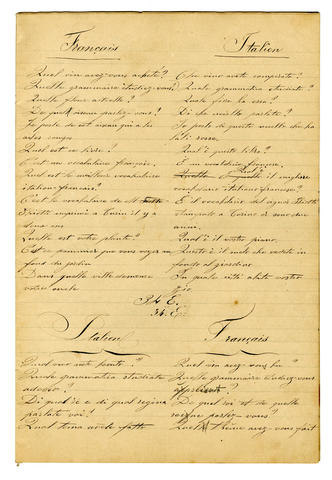 Français
Italien
Quel vin avez-vous acheté?
Che vino avete comperato?
Quelle grammaire étudiez-vous?
Quale grammatica studiate?
Quelle fleur a-t-elle?
Quale fiore ha essa?
De quel parlez-vous?
Di che mulo parlate?
Je parle de cet qui a les
Io parlo di questo mulo che ha
ailes rouges
Quel est ce livre?
Qual è questo libro?
C'est un vocabulaire français.
È un vocabolario francese.
Quel est le meilleur vocabulaire
Qual è il migliore
italien-français?
vocabolario italiano francese?
C'est le vocabulaire de M
È il vocabolario del signor
imprimé à Turin il y a
stampato a Torino or sono due
deux ans
anni.
Quelle est votre plante?
Qual è il vostro piano.
C'est ce pommier que vous voyez au
Questo è il melo che vedete in
fond du jardin
fondo al giardino
Dans quelle ville demeure
In quale città abita vostro
votre oncle
zio
34. E.
34. E.
Italien
Français
Qual vino avete
Quel vin avez-vous bu?
Quale grammatica studiate
Quelle grammaire étudiez-vous
adesso?
à présent?
Di qual re e di qual regina
De quel roi et de quelle
parlate voi?
reine parlez-vous?
Qual tema avete fatto
Quel thème avez-vous fait